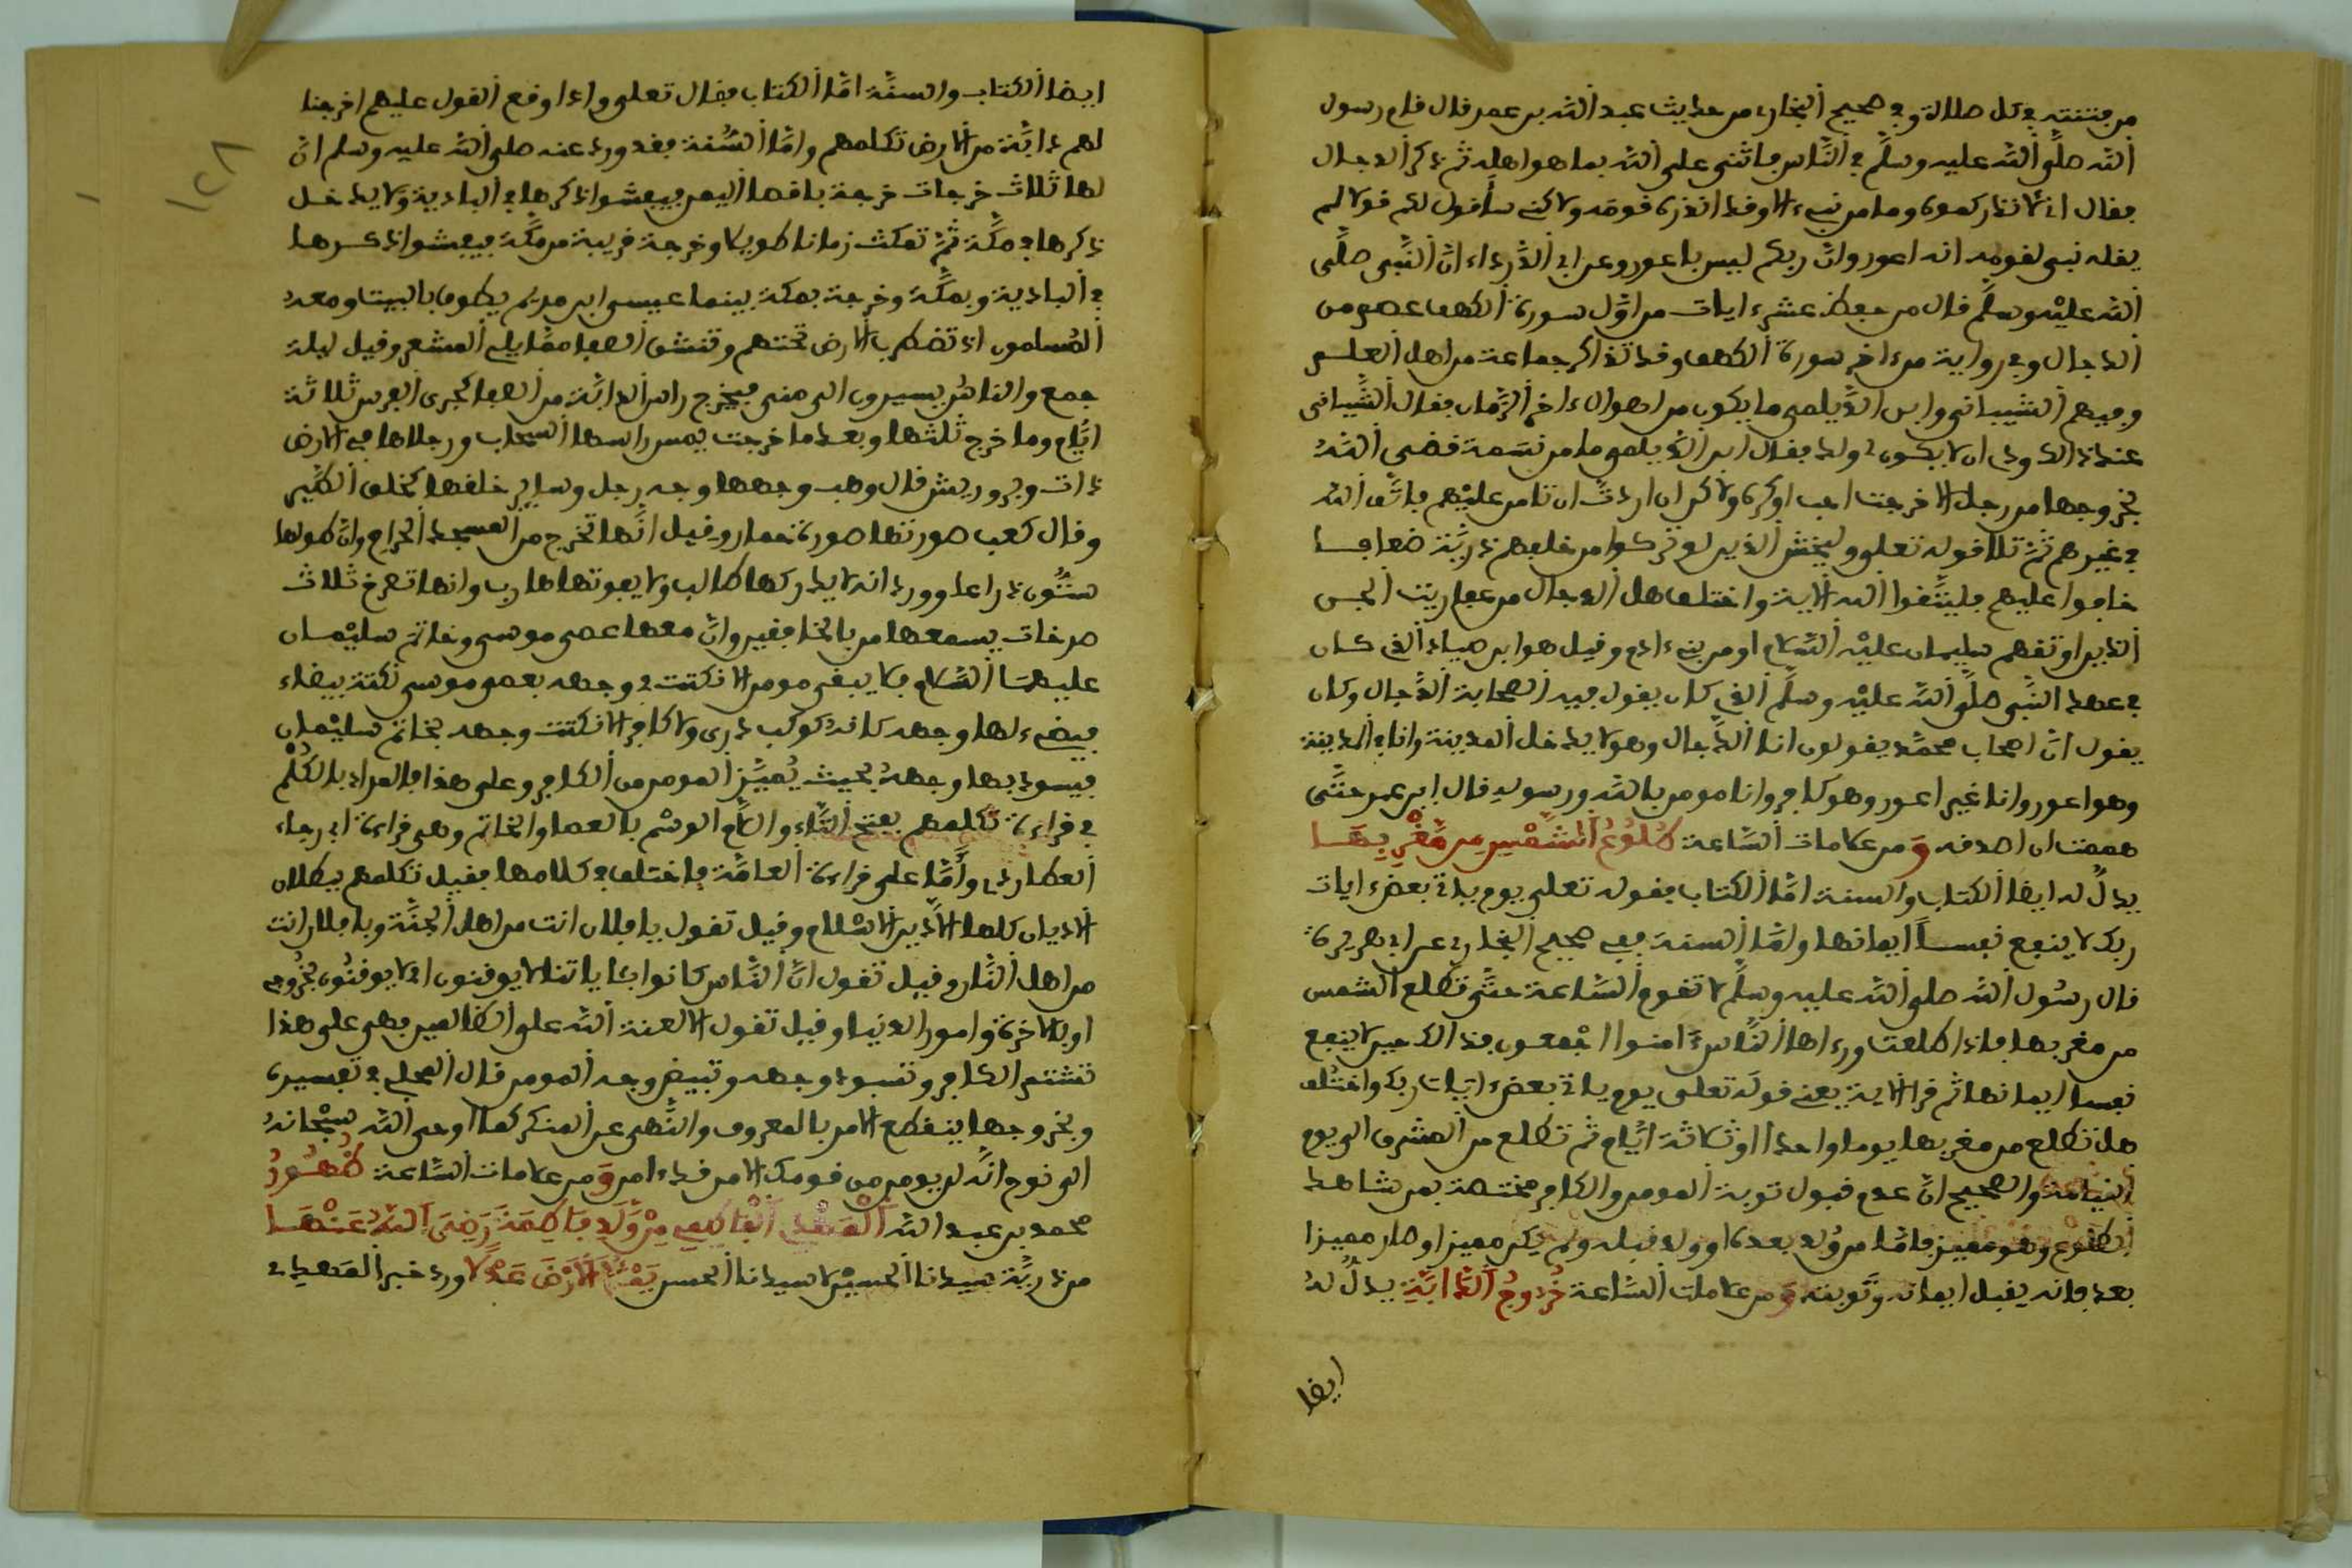 من فتنته في كل صلاة وفي صحيح البخاري من حديث عبد الله بن عمر قال قام رسول
الله صلى الله عليه وسلم في الناس فاثنى على الله بما هو اهله ثم ذكر الدجال
فقال اني لانذركموه وما من نبيء الا وقد انذره قومه ولاكني ساقول لكم قولا لم
يقله نبي لقومه انه اعور وان ربكم ليس باعور وعن ابي الدرداء ان النبي صلى
الله عليه وسلم قال من حفظ عشر ءايات من اول سورة الكهف عصم من
الدجال وفي رواية من ءاخر سورة الكهف وقد تذاكر جماعة من اهل العلم
وفيهم الشيباني وابن الديلمي ما يكون من اهوال ءاخر الزمان فقال الشيباني
عند ذالك ودي ان لا يكون لي ولد فقال ابن الديلمي ما من نسمة قضى الله
بخروجها من رجل الا خرجت احب او كره ولاكن ان اردت ان تامن عليهم فاتق الله
في غيرهم ثم تلا قوله تعلى وليخش الذين لو تركوا من خلفهم ذرية ضعافا
خافوا عليهم فليتقوا الله الاية واختلف هل الدجال من عفاريت الجن
الذين اوثقهم سليمان عليه السلام او من بني ءادم وقيل هو ابن صياد الذي كان
في عهد النبي صلى الله عليه وسلم الذي كان يقول فيه الصحابة الدجال وكان
يقول ان اصحاب محمد يقولون انا الدجال وهو لا يدخل المدينة وانا في المدينة
وهو اعور وانا غير اعور وهو كافر وانا مومن بالله ورسوله قال ابن عمر حتى
هممت ان اصدقه ومن علامات الساعة طلوع الشمس من مغربها
يدل له ايضا الكتاب والسنة اما الكتاب فقوله تعلى يوم ياتي بعض ءايات
ربك لا ينفع نفسا ايمانها واما السنة ففي صحيح البخاري عن ابي هريرة
قال رسول الله صلى الله عليه وسلم لا تقوم الساعة حتى تطلع الشمس
من مغربها فاذا طلعت ورءاها الناس ءامنوا اجمعون فذالك حين لا ينفع
نفسا ايمانها ثم قرا الاية يعني قوله تعلى يوم ياتي بعض ءايات ربك واختلف
هل تطلع من مغربها يوما واحدا او ثلاثة ايام ثم تطلع من المشرق الى يوم
القيامة والصحيح ان عدم قبول توبة المومن والكافر مختصة بمن شاهد
الطلوع وهو مميز فاما من ولد بعده او ولد قبله ولم يكن مميزا وصار مميزا
بعد فانه يقبل ايمانه وتوبته ومن علامات الساعة خروج الدابة يدل له
ايضا
ايضا الكتاب والسنة اما الكتاب فقال تعلى واذا وقع القول عليهم اخرجنا
لهم دابة من الارض تكلمهم واما السنة فقد ورد عنه صلى الله عليه وسلم ان
لها ثلاث خرجات خرجة باقصا اليمن فيفشوا ذكرها في البادية ولا يدخل
ذكرها في مكة ثم تمكث زمانا طويلا وخرجة قريبة من مكة فيفشوا ذكرها
في البادية وبمكة وخرجة بمكة بينما عيسى ابن مريم يطوف بالبيت ومعه
المسلمون اذ تضطرب الارض تحتهم وتنشق الصفا مما يلي المشعر وقيل ليلة
جمع والناس يسيرون الى منى فيخرج راس الدابة من الصفا كجرى الفرس ثلاثة
ايام وما خرج ثلثها وبعد ما خرجت يمس راسها السحاب ورجلاها في الارض
ذات وبر وريش قال وهب وجهها وجه رجل وساير خلقها كخلق الطير
وقال كعب صورتها صورة حمار وقيل انها تخرج من المسجد الحرام وان طولها
ستون ذراعا وورد انه لا يدركها طالب ولا يفوتها هارب وانها تصرخ ثلاث
صرخات يسمعها من بالخافقين وان معها عصى موسى وخاتم سليمان
عليهما السلام فلا يبقى مومن الا نكتت في وجهه بعصى موسى نكتة بيضاء
فيضيء لها وجهه كانه كوكب دري ولا كافر الا نكتت وجهه بخاتم سليمان
فيسود بها وجهه بحيث يميز المومن من الكافر وعلى هذا فالمراد بالكلم
في قراءة تكلمهم بفتح التاء واللام الوشم بالعصا والخاتم وهي قراءة ابي رجاء
العطاردي واما على قراءة العامة فاختلف في كلامها فقيل تكلمهم ببطلان
الاديان كلها الا دين الاسلام وقيل تقول يا فلان انت من اهل الجنة ويا فلان انت
من اهل النار وقيل تقول ان الناس كانوا بئاياتنا لا يوقنون اي لا يوقنون بخروجي
او بالاخرة وامور الدنيا وقيل تقول الا لعنة الله على الظالمين فهي على هذا
تشتم الكافر وتسود وجهه وتبيض وجه المومن قال المحلي في تفسيره
وبخروجها ينقطع الامر بالمعروف والنهي عن المنكر كما اوحى الله سبحانه
الى نوح انه لن يومن من قومك الا من قد ءامن ومن علامات الساعة ظهور
محمد بن عبد الله المهدي الفاطمي من ولد فاطمة رضي الله عنها
من ذرية سيدنا الحسين لا سيدنا الحسن يملأ الارض عدلا ورد خبر المهدي